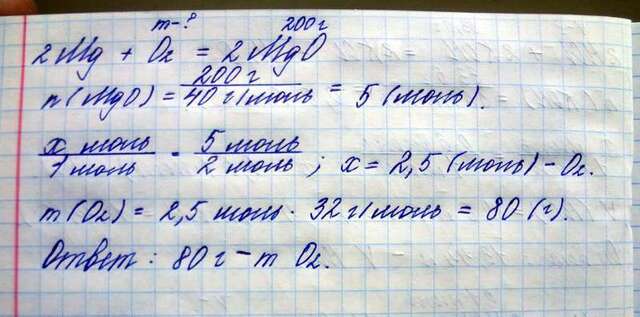 m-? 200г
2Mg + O₂ = 2MgO
n(MgO) = 200 г / 40 г/моль = 5 (моль).
x моль / 1 моль = 5 моль / 2 моль ; x = 2,5 (моль) - O₂.
m(O₂) = 2,5 моль · 32 г/моль = 80 (г).
Ответ: 80 г - m O₂.